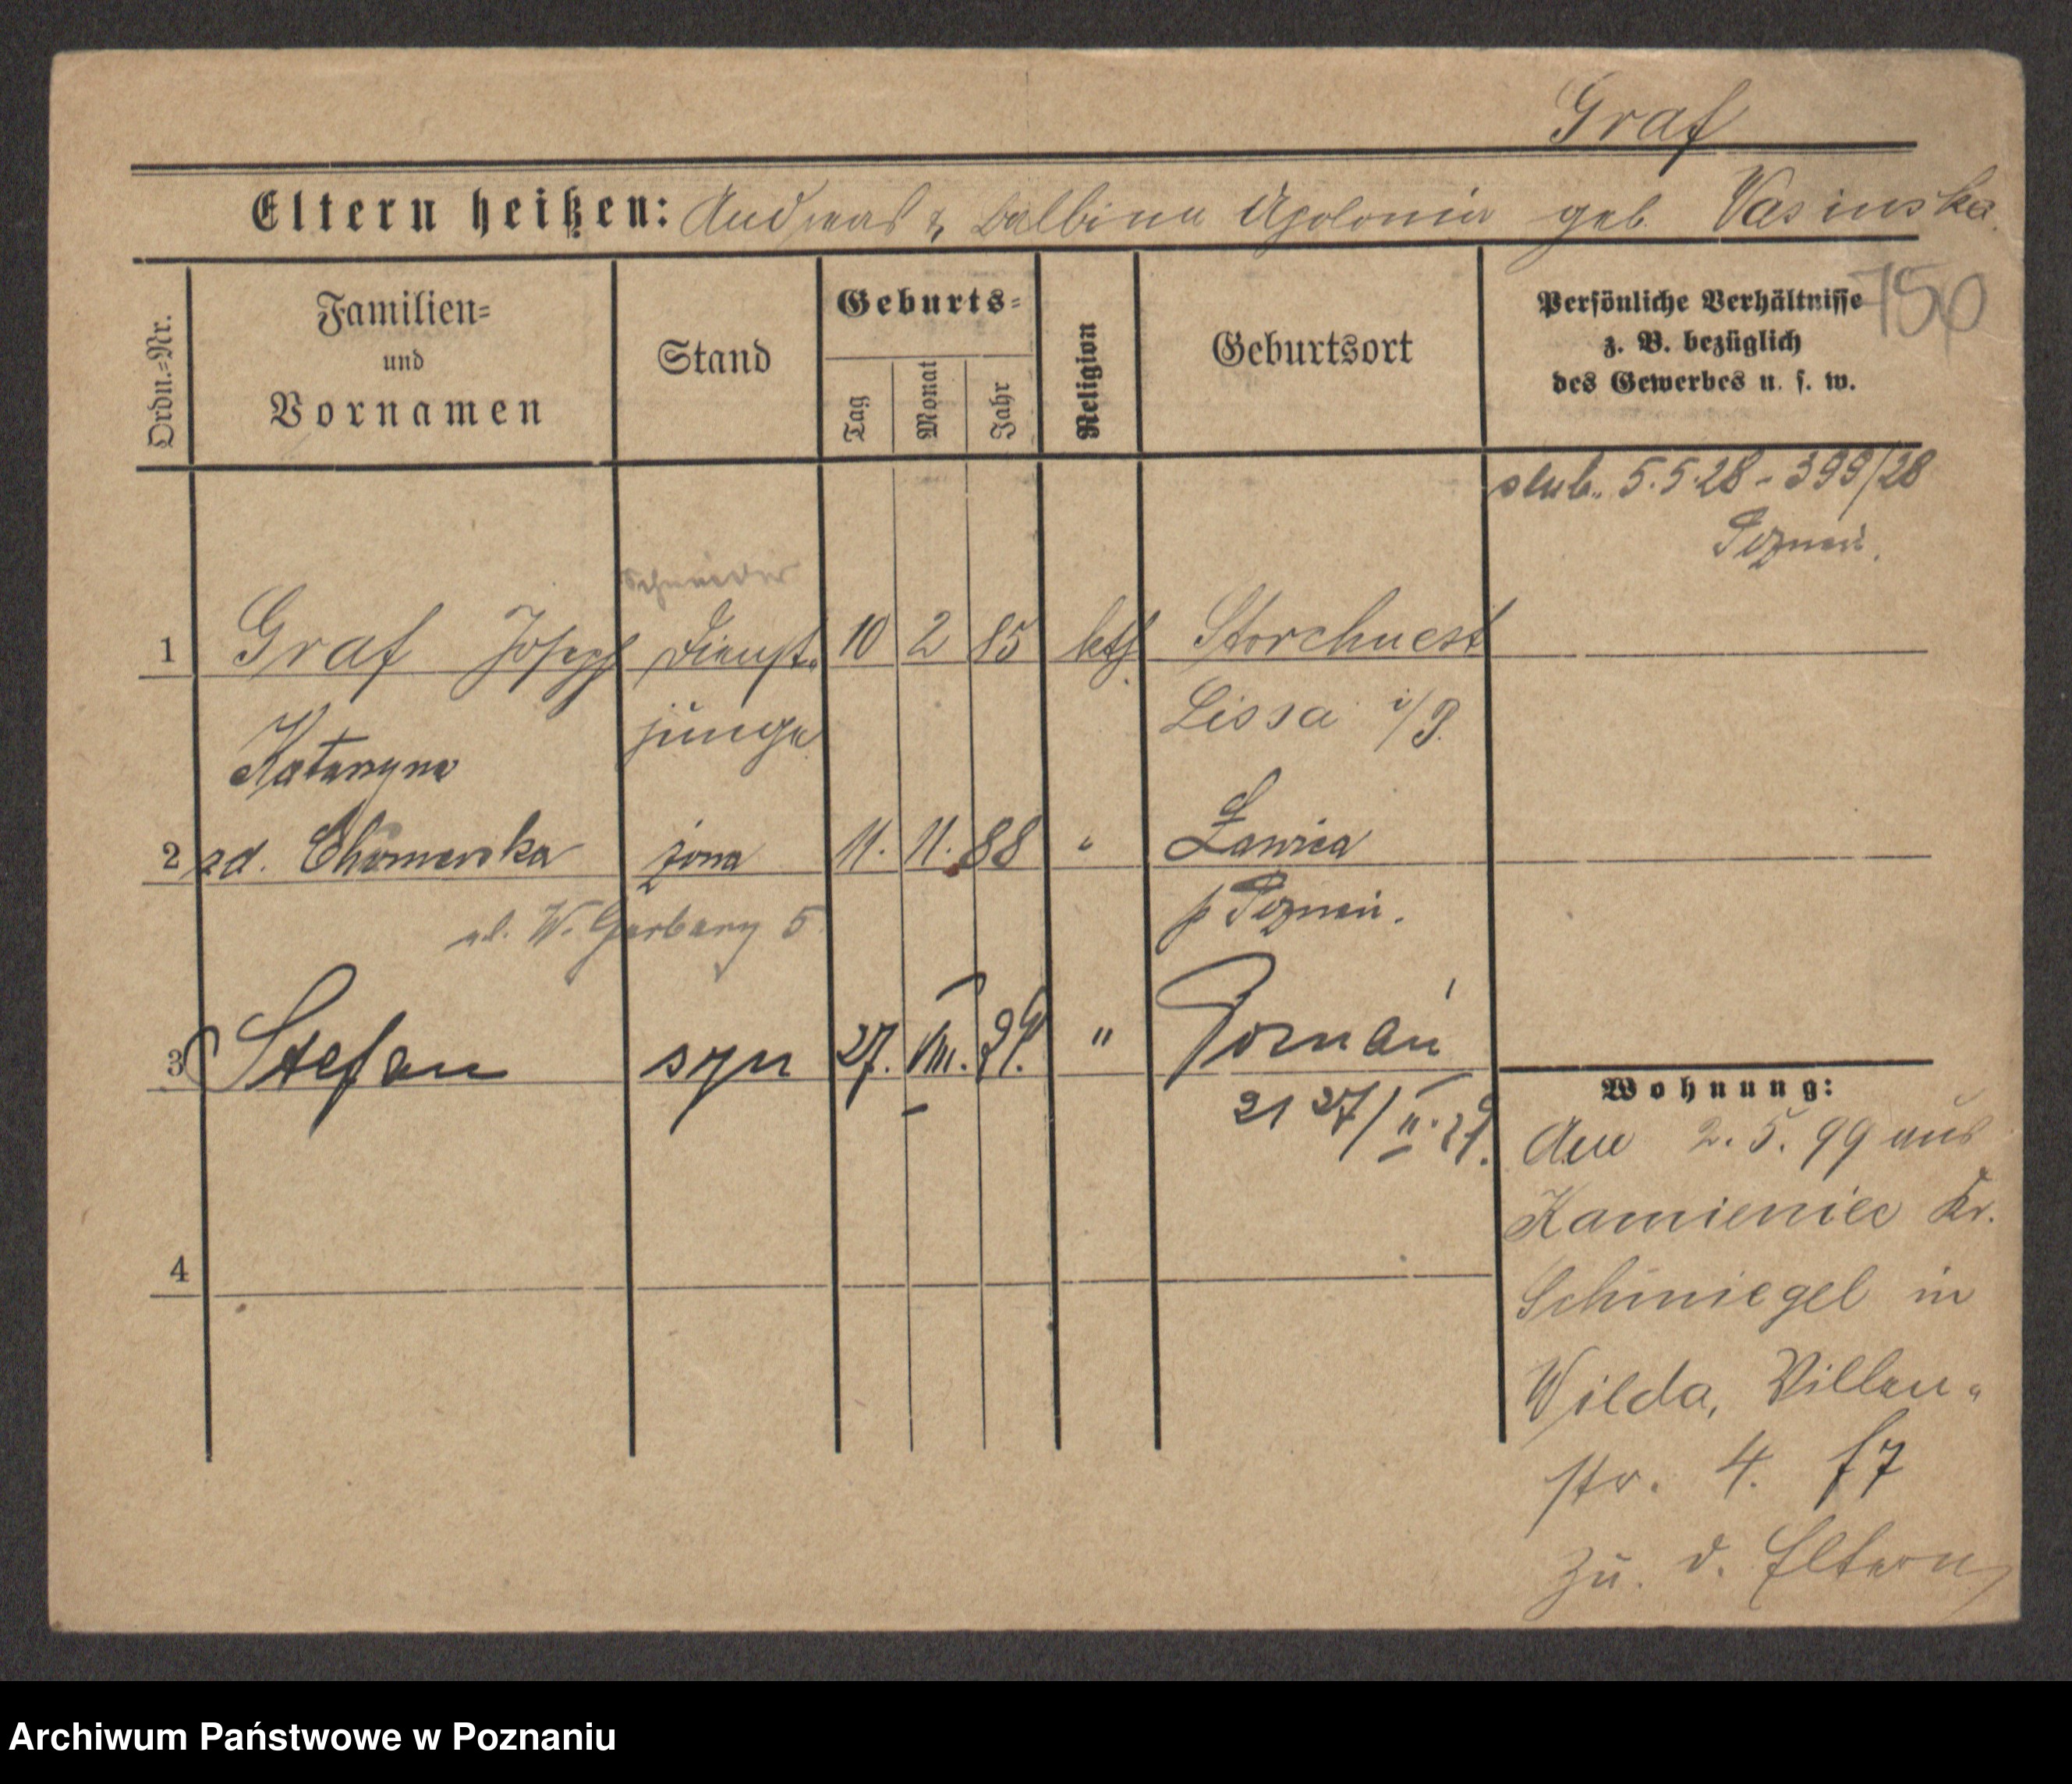 Graf
Eltern heißen: Andreas & Balbina Apolonia geb. Vasinska.
750
Ordn.=Nr.
Familien=
und
Vornamen
Stand
Geburts=
Tag
Monat
Jahr
Religion
Geburtsort
Persönliche Verhältnisse
z. B. bezüglich
des Gewerbes u. s. w.
slub. 5.5.28 - 399/28
Poznań.
Schneider
1 Graf Joseph Dienst. 10 2 85 kth. Storchnest
junge Lissa i/P.
Katarzyna
2 zd. żona 11. 11. 88 " Ławica
ul. W. Garbary 5 p Poznań.
3 Stefan syn 27. VIII. 24. " Poznań
Wohnung:
Am 2. 5. 99 aus
Kamieniec Kr.
Schmiegel in
Wilda, Villen-
str. 4. f7
zu. d. Eltern
4
Archiwum Państwowe w Poznaniu